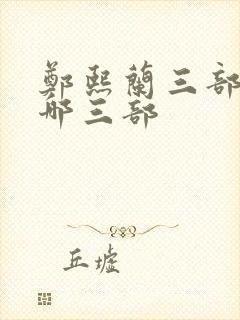 鄭熙蘭三部
哪三部
丘墟